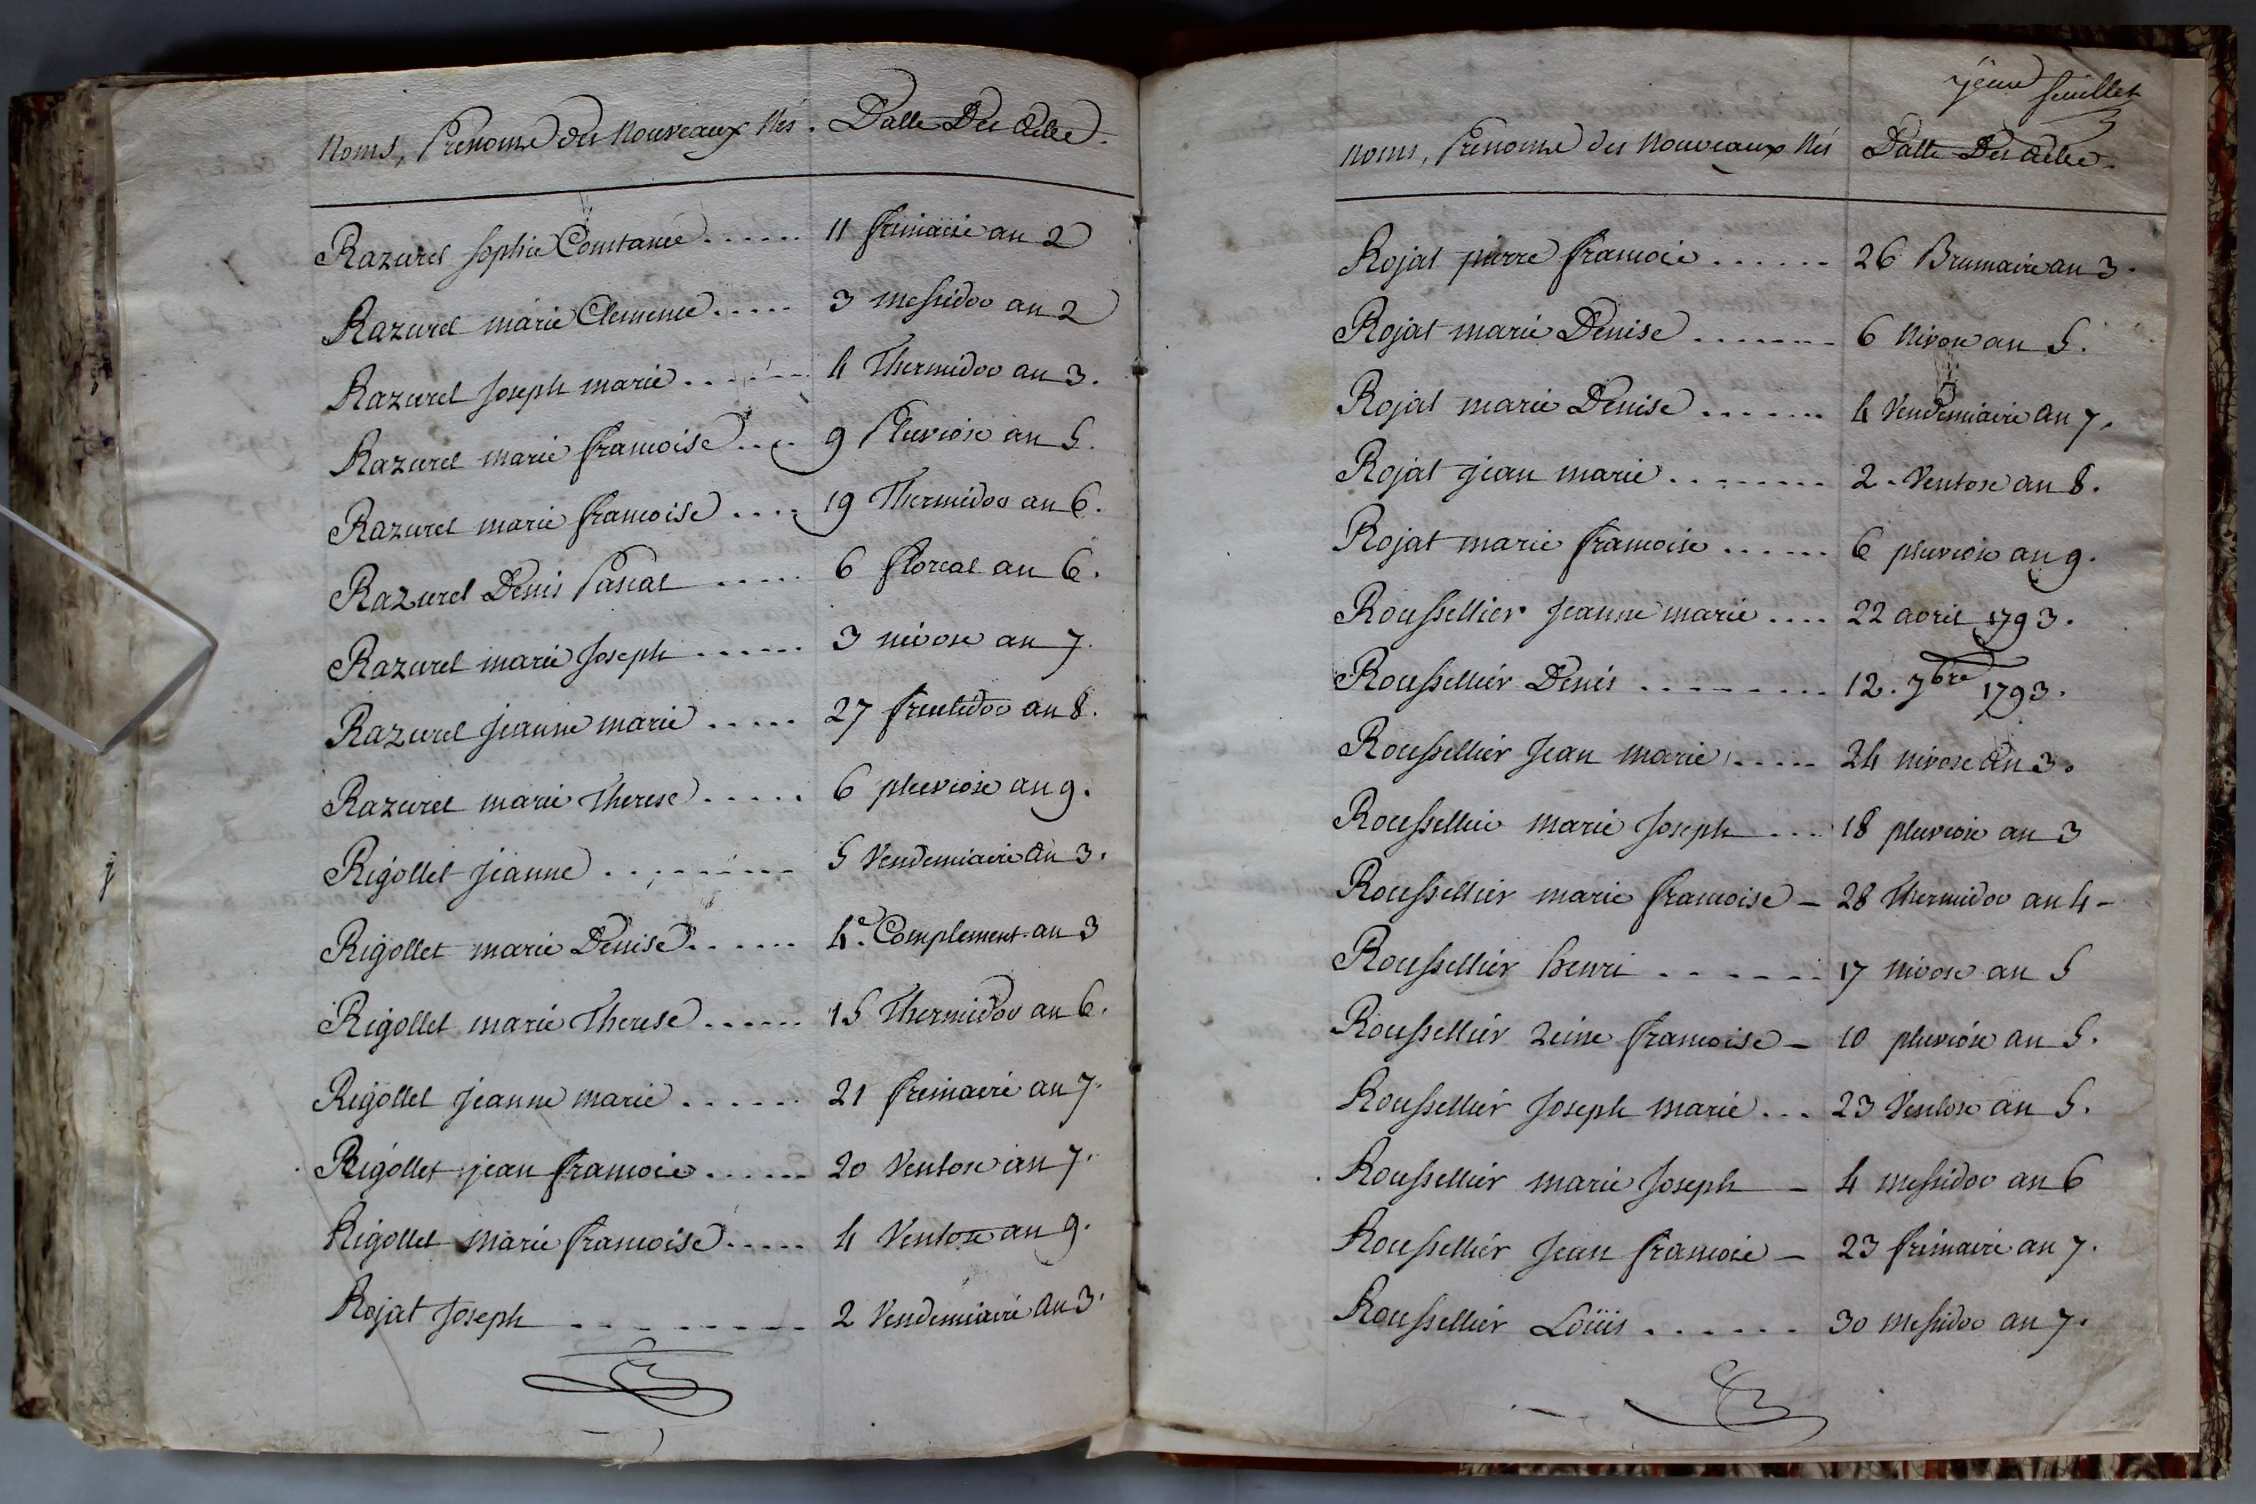 Noms, Prenoms des Nouveaux Nés. Datte Des Actes.
Razurel Sophie Constance ...... 11 frimaire an 2
Razurel marie Clemence ..... 3 messidor an 2
Razurel Joseph marie ...... 4 Thermidor an 3.
Razurel marie francoise .... 9 Pluviose an 5.
Razurel marie francoise .... 19 Thermidor an 6.
Razurel Denis Pascal ..... 6 floreal an 6.
Razurel marie Joseph ...... 3 nivose an 7.
Razurel Jeanne marie ..... 27 fructidor an 8.
Razurel marie Therese ..... 6 pluviose an 9.
Rigollet Jeanne ......... 5 Vendemiaire an 3.
Rigollet marie Denise ...... 4e. Complement. an 3
Rigollet marie Therese ...... 15 Thermidor an 6.
Rigollet Jeanne marie ...... 21 frimaire an 7.
Rigollet jean francois ...... 20 Ventose an 7.
Rigollet marie francoise ..... 4 Ventose an 9.
Rojat Joseph ......... 2 Vendemiaire an 3.
7eme feuillet
Noms, Prenoms des Nouveaux Nés Datte Des Actes.
Rojat pierre francois ...... 26 Brumaire an 3.
Rojat marie Denise ....... 6 Nivose an 5.
Rojat marie Denise ....... 4 Vendemiaire an 7.
Rojat jean marie ........ 2. Ventose an 8.
Rojat marie francoise ...... 6 pluviose an 9.
Roussellier Jeanne marie .... 22 avril 1793.
Roussellier Denis ......... 12. 7bre 1793.
Roussellier Jean marie ..... 24 nivose an 3.
Roussellier marie Joseph ... 18 pluviose an 3
Roussellier marie francoise - 28 Thermidor an 4-
Roussellier henri ....... 17 nivose an 5
Roussellier Reine francoise - 10 pluviose an 5.
Roussellier Joseph marie ... 23 Ventose an 5.
Roussellier marie Joseph - 4 messidor an 6
Roussellier Jean francois - 23 frimaire an 7.
Roussellier Loüis ...... 30 messidor an 7.